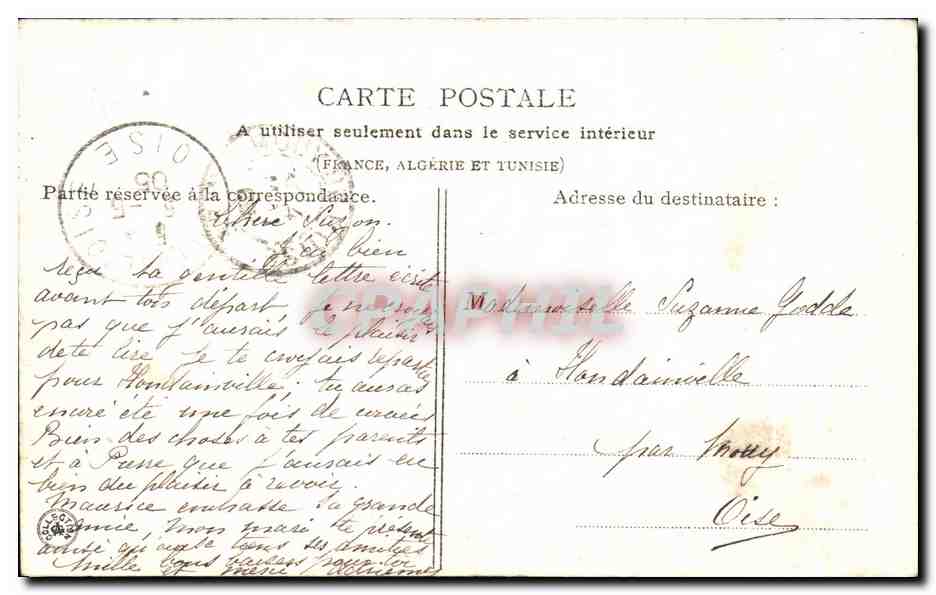 CARTE POSTALE
A utiliser seulement dans le service intérieur
(FRANCE, ALGÉRIE ET TUNISIE)
Partie réservée à la correspondance.
Adresse du destinataire :
OISE
05
Chère Suzon.
J'ai bien
reçu ta gentille lettre écrite
avant ton départ, je ne croyais
pas que j'aurais le plaisir
de te lire je te croyais repartie
pour Hondainville. tu aurais
encore été une fois de
Bien des choses à tes parents
et à Pierre que j'aurais eu
bien du plaisir à revoir.
Maurice embrasse sa grande
amie, mon mari te
ainsi qu'a tiens ses amitiés
Mille bons baisers pour toi
et
Mademoiselle Suzanne Godde
à Hondainville
par Mouy
Oise
COLLECTION
GRAPHIL